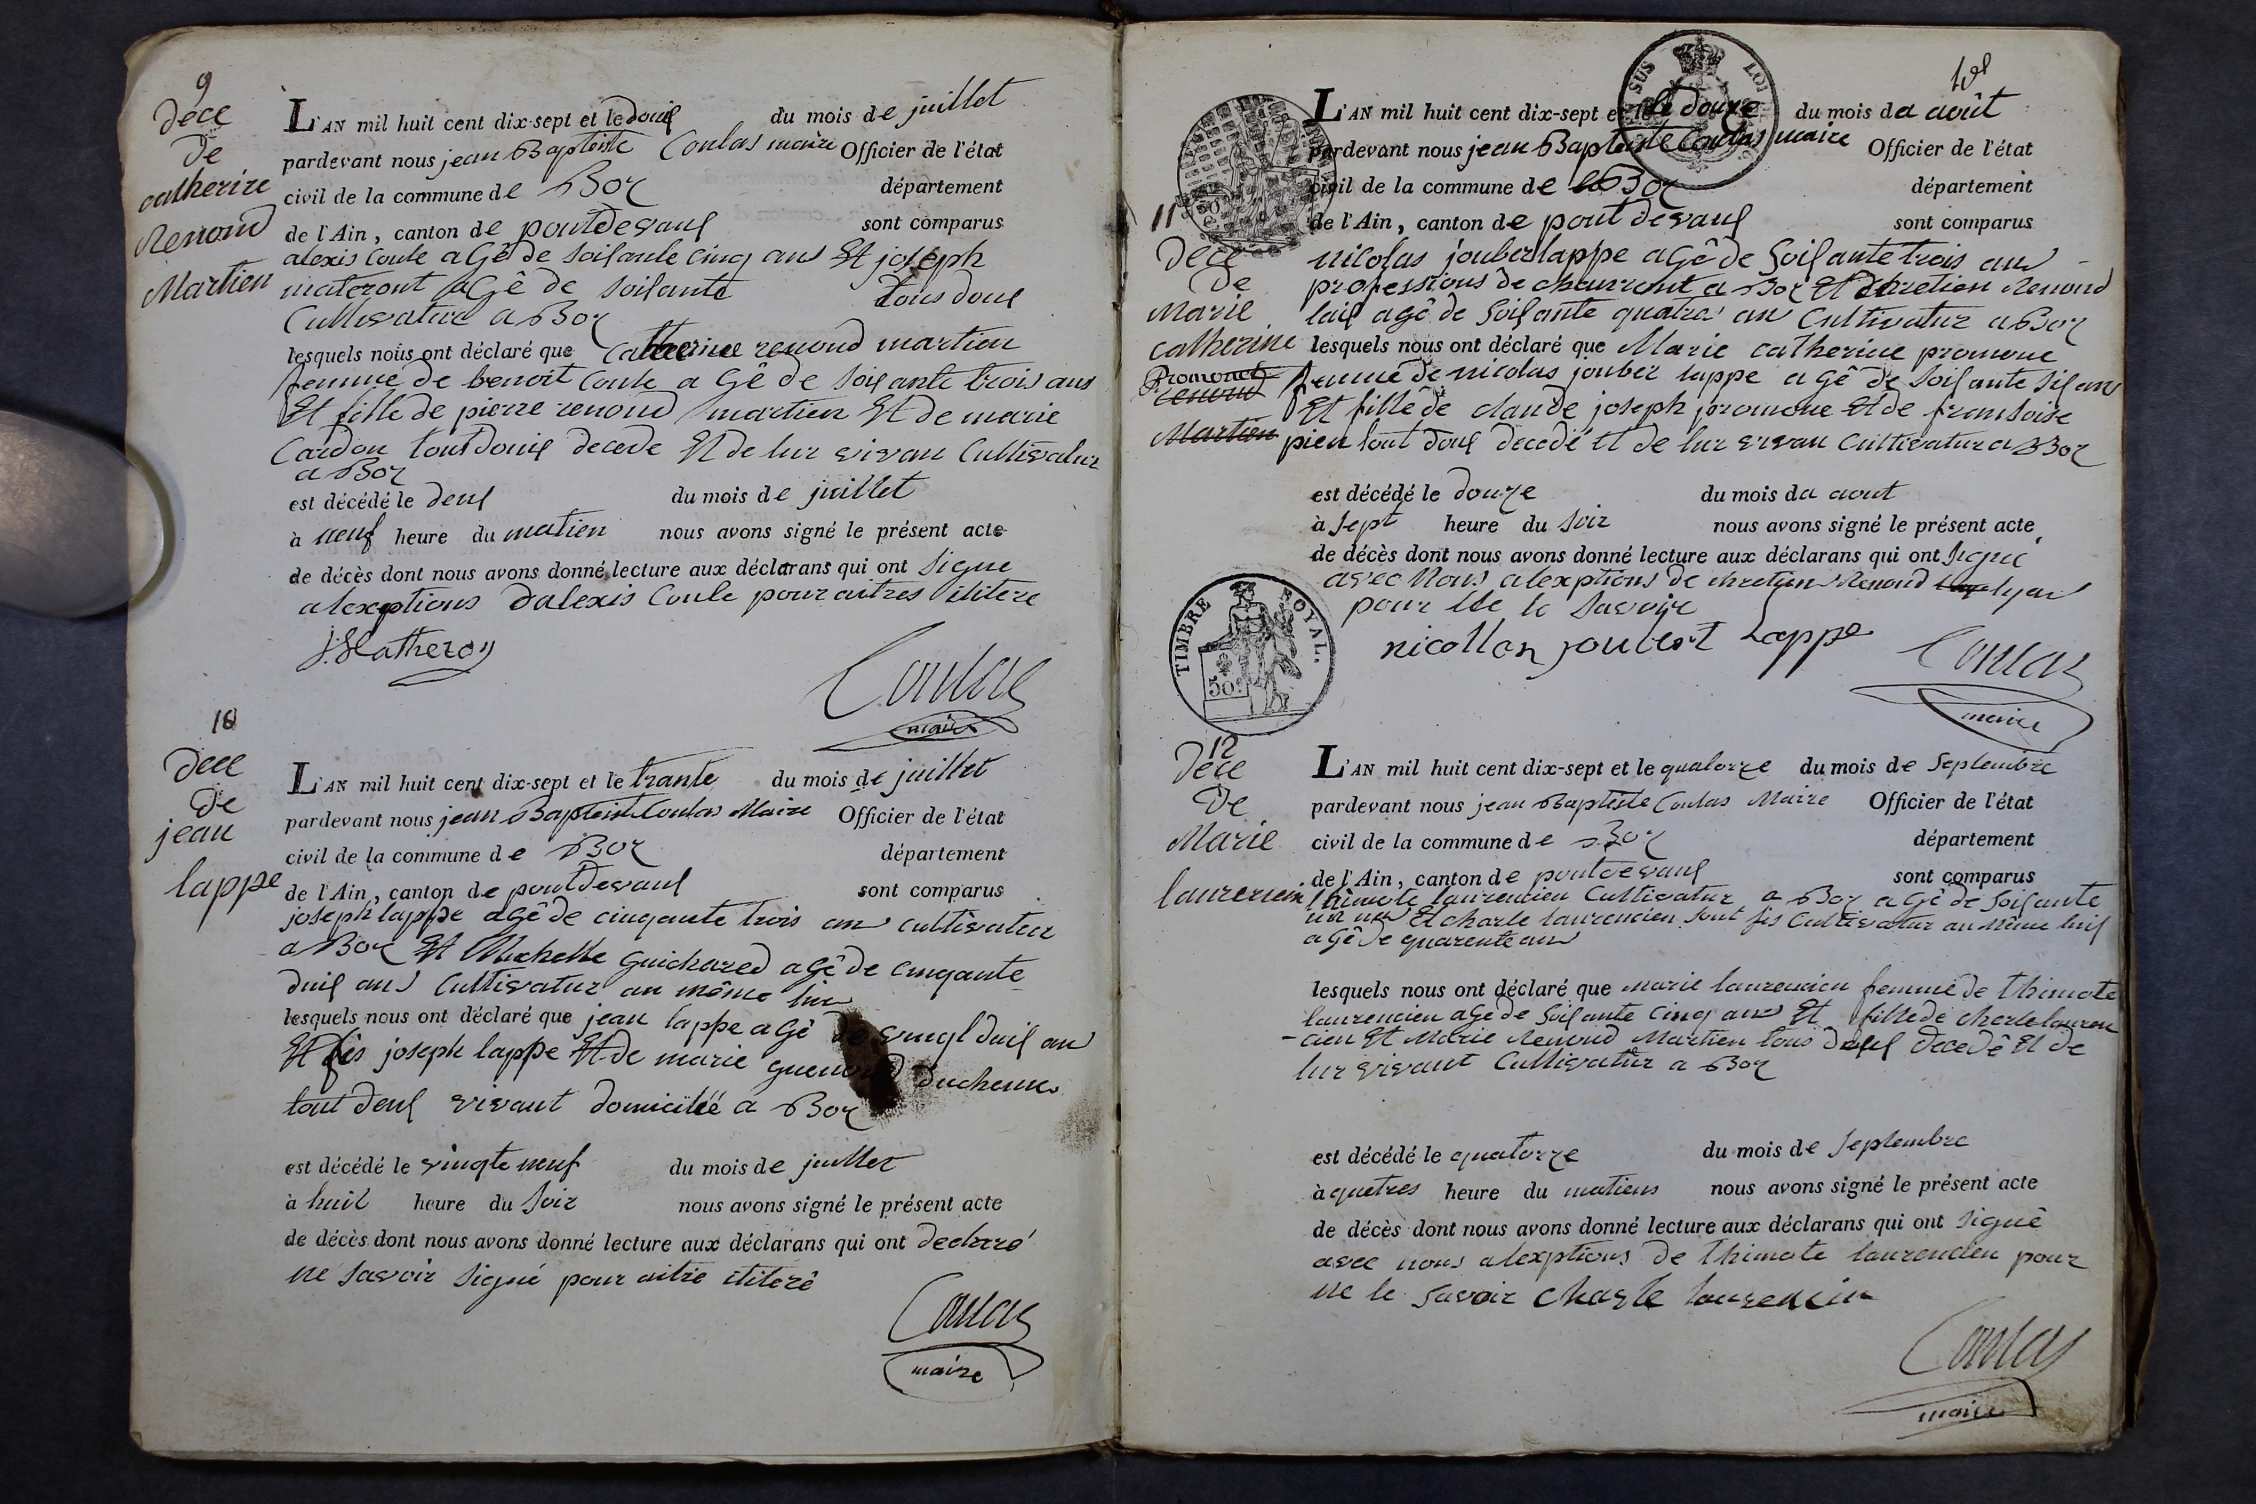 9
Dece
De
catherine
Renond
Martien
L'AN mil huit cent dix-sept et le douil du mois de juillet
pardevant nous jean Baptiste Coulas maire Officier de l'état
civil de la commune de Boz département
de l'Ain, canton de pontdevaul sont comparus
alexis Coule a Gê de Soisante Cinq ans Et joseph
materont a Gê de Soisante tous doul
Cultivature a Boz
lesquels nous ont déclaré que Catherine renond martien
femme de benoit Coule a Gê de Soisante trois ans
Et fille de pierre renond martien Et de marie
Cardon tout douil decede Et de lur vivan Cultivatur
a Boz
est décédé le deul du mois de juillet
à neuf heure du matien nous avons signé le présent acte
de décès dont nous avons donné lecture aux déclarans qui ont Signe
alexptions Dalexis Coule pour aitres ititere
J. Matheron
Coulas
maire
10
Dece
De
jean
lappe
L'AN mil huit cent dix-sept et le trante du mois de juillet
pardevant nous jean Baptiste Coulas Maire Officier de l'état
civil de la commune de Boz département
de l'Ain, canton de pontdevaul sont comparus
joseph lappe agê de cinqante trois an cultivateur
a Boz Et Michelle Guichared agê de Cinqante
duil ans Cultivatur au même lur
lesquels nous ont déclaré que jean lappe a Gê de vingt duil an
Et fis joseph lappe Et de marie Duchenne
tout deul vivant domicileé a Boz
est décédé le vingte neuf du mois de juillet
à huil heure du Soir nous avons signé le présent acte
de décès dont nous avons donné lecture aux déclarans qui ont declaré
ne Savoir Signé pour aitre ititerê
Coulas
maire
101
SUS LOI
L'AN mil huit cent dix-sept et le douze du mois da août
pardevant nous jean Baptiste Coulas maire Officier de l'état
civil de la commune de Boz département
11
de l'Ain, canton de pont devaul sont comparus
Dece
De
Marie
catherine
Promonet
renond
Martien
nicolas jouber lappe agê de Soisante trois an
professions de charront a Boz Et Chretien Renond
lail agê de Soisante quatre an Cultivatur a Boz
lesquels nous ont déclaré que Marie catherine promone
femme de nicolas jouber lappe a gê de Soisante Sil ans
Et fillê de claude joseph promone Et de fransoise
pien tout doul decedé Et de lur vivan Cultivatur a Boz
est décédé le douze du mois da aout
à Sept heure du Soir nous avons signé le présent acte
de décès dont nous avons donné lecture aux déclarans qui ont Signé
avec Nous alexptions de chretien Renond lyai
pour Ne le Savoire
TIMBRE ROYAL.
50c
nicollan joubert Lappe
Coulas
maire
12
Dece
De
Marie
laurencien
L'AN mil huit cent dix-sept et le quatorze du mois de Septembre
pardevant nous jean Baptiste Coulas Maire Officier de l'état
civil de la commune de Boz département
de l'Ain, canton de pontdevaul sont comparus
thimote laurencien Cultivatur a Boz a Gê de Soisante
un an Et charle laurencien Sont fis Cultivatur au même luil
a Gê de quarente an
lesquels nous ont déclaré que marie laurencien femme de thimote
laurencien a Gê de Soisante Cinq ans Et fille de charle lauren
-cien Et Marie Renond Martien tous deul decedê Et de
lur vivant Cultivatur a Boz
est décédé le quatorze du mois de Septembre
à quetres heure du matiens nous avons signé le présent acte
de décès dont nous avons donné lecture aux déclarans qui ont Signê
avec nous alexptions de thimote laurencien pour
ne le Savoir Charle laurencin
Coulas
maire